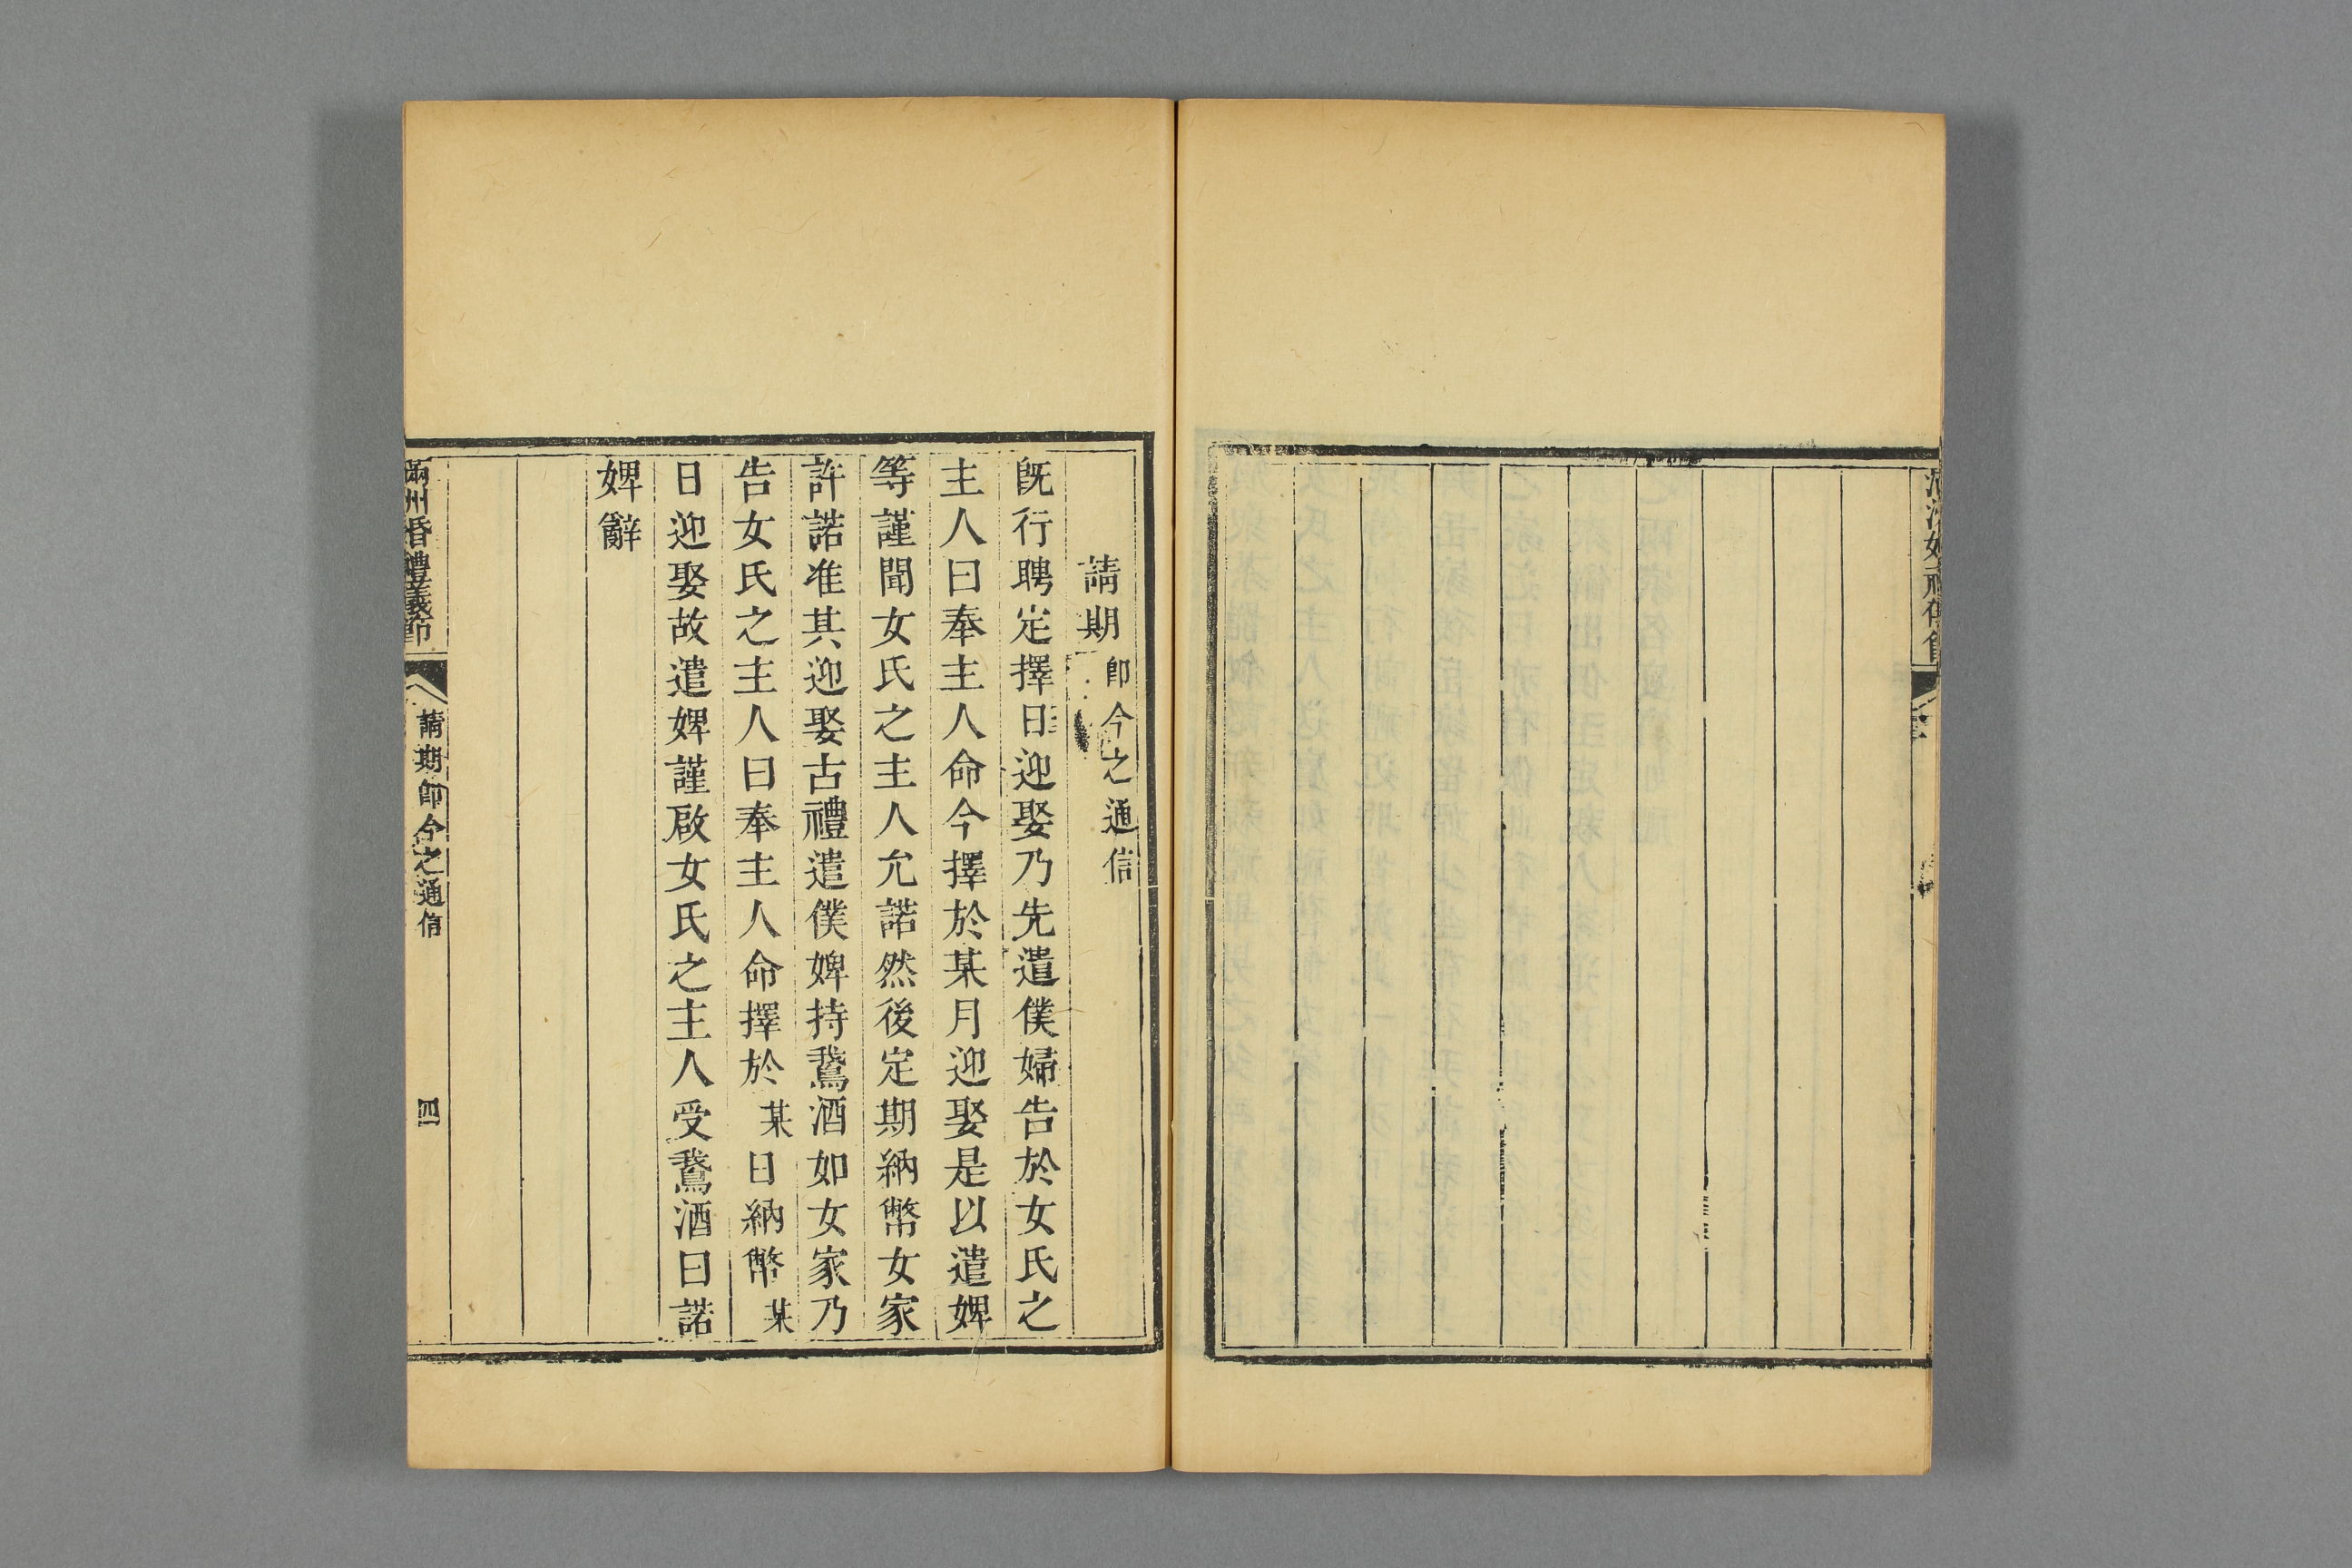 請期即今之通信
既行聘定擇日迎娶乃先遣僕婦告於女氏之
主人曰奉主人命今擇於某月迎娶是以遣婢
等謹聞女氏之主人允諾然後定期納幣女家
許諾准其迎娶古禮遣僕婢持鵞酒如女家乃
告女氏之主人曰奉主人命擇於某日納幣某
日迎娶故遣婢謹啟女氏之主人受鵞酒曰諾
婢辭
滿州婚禮義節
請期即今之通信
四